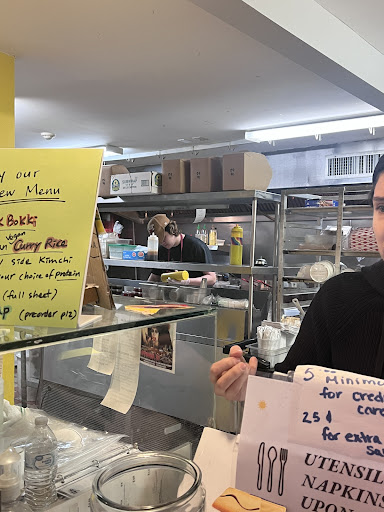 our
New Menu
Bokki
Vegan
Curry Rice
side Kimchi
our choice of protein
(full sheet)
(preorder plz)
5
Minimum
for cred
car
25¢
for extra
Sa
UTENSIL
NAPKINS
UPON